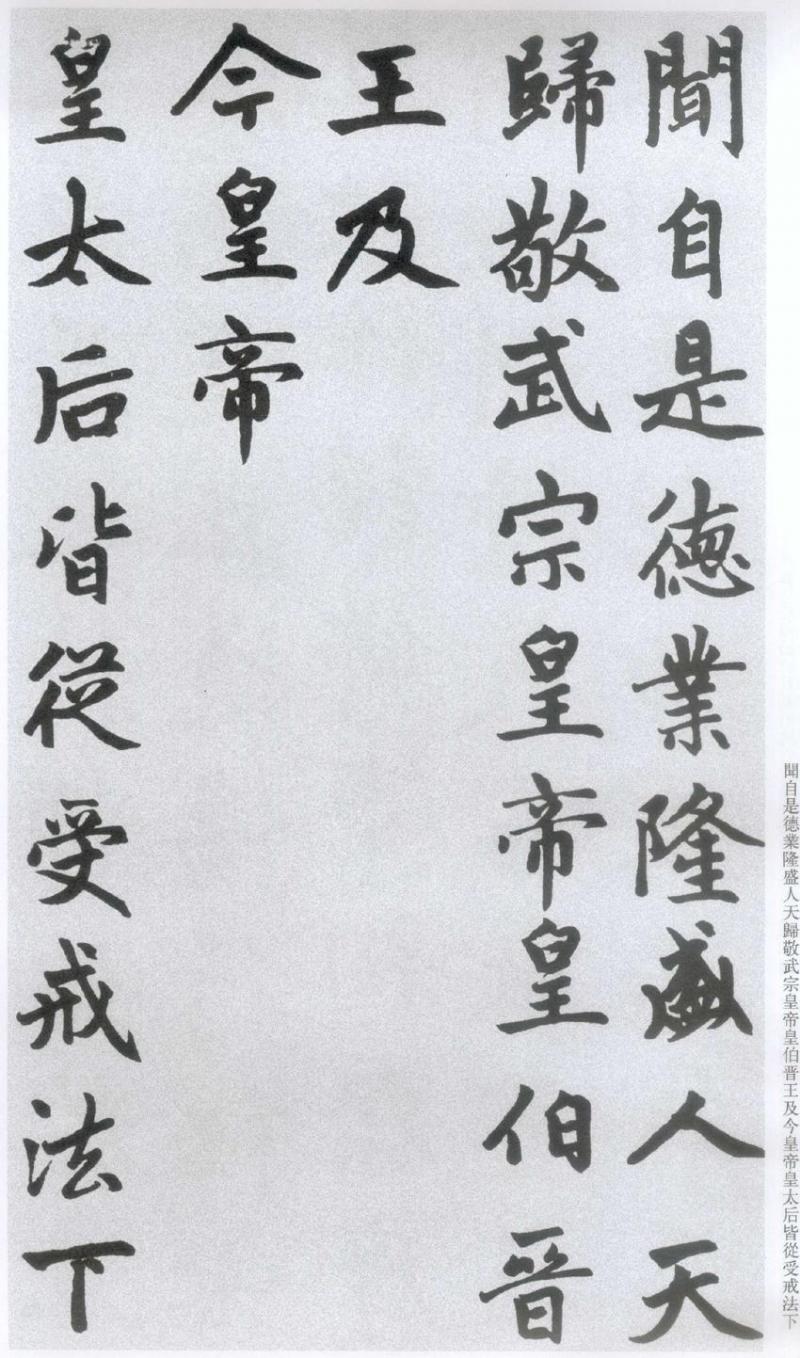 聞自是德業隆盛人天
歸敬武宗皇帝皇伯晉
王及
今皇帝
皇太后皆從受戒法下
聞自是德業隆盛人天歸敬武宗皇帝皇伯晋王及今皇帝皇太后皆從受戒法下